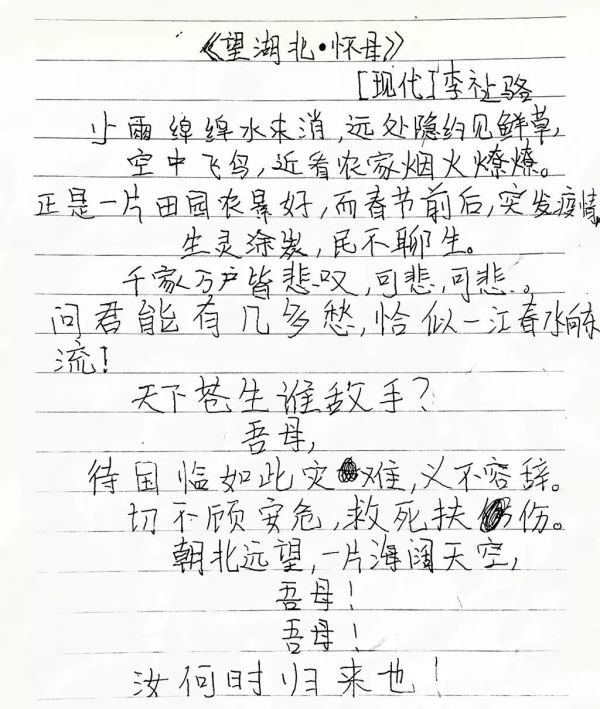 《望湖北·怀母》
[现代]李祉骆
小雨绵绵水未消,远处隐约见鲜草,
空中飞鸟,近看农家烟火燎燎。
正是一片田园农景好,而春节前后,突发疫情,
生灵涂炭,民不聊生。
千家万户皆悲叹,可悲,可悲。
问君能有几多愁,恰似一江春水向东
流!
天下苍生谁敌手?
吾母,
待国临如此灾难,义不容辞。
切不顾安危,救死扶伤。
朝北远望,一片海阔天空,
吾母!
吾母!
汝何时归来也!